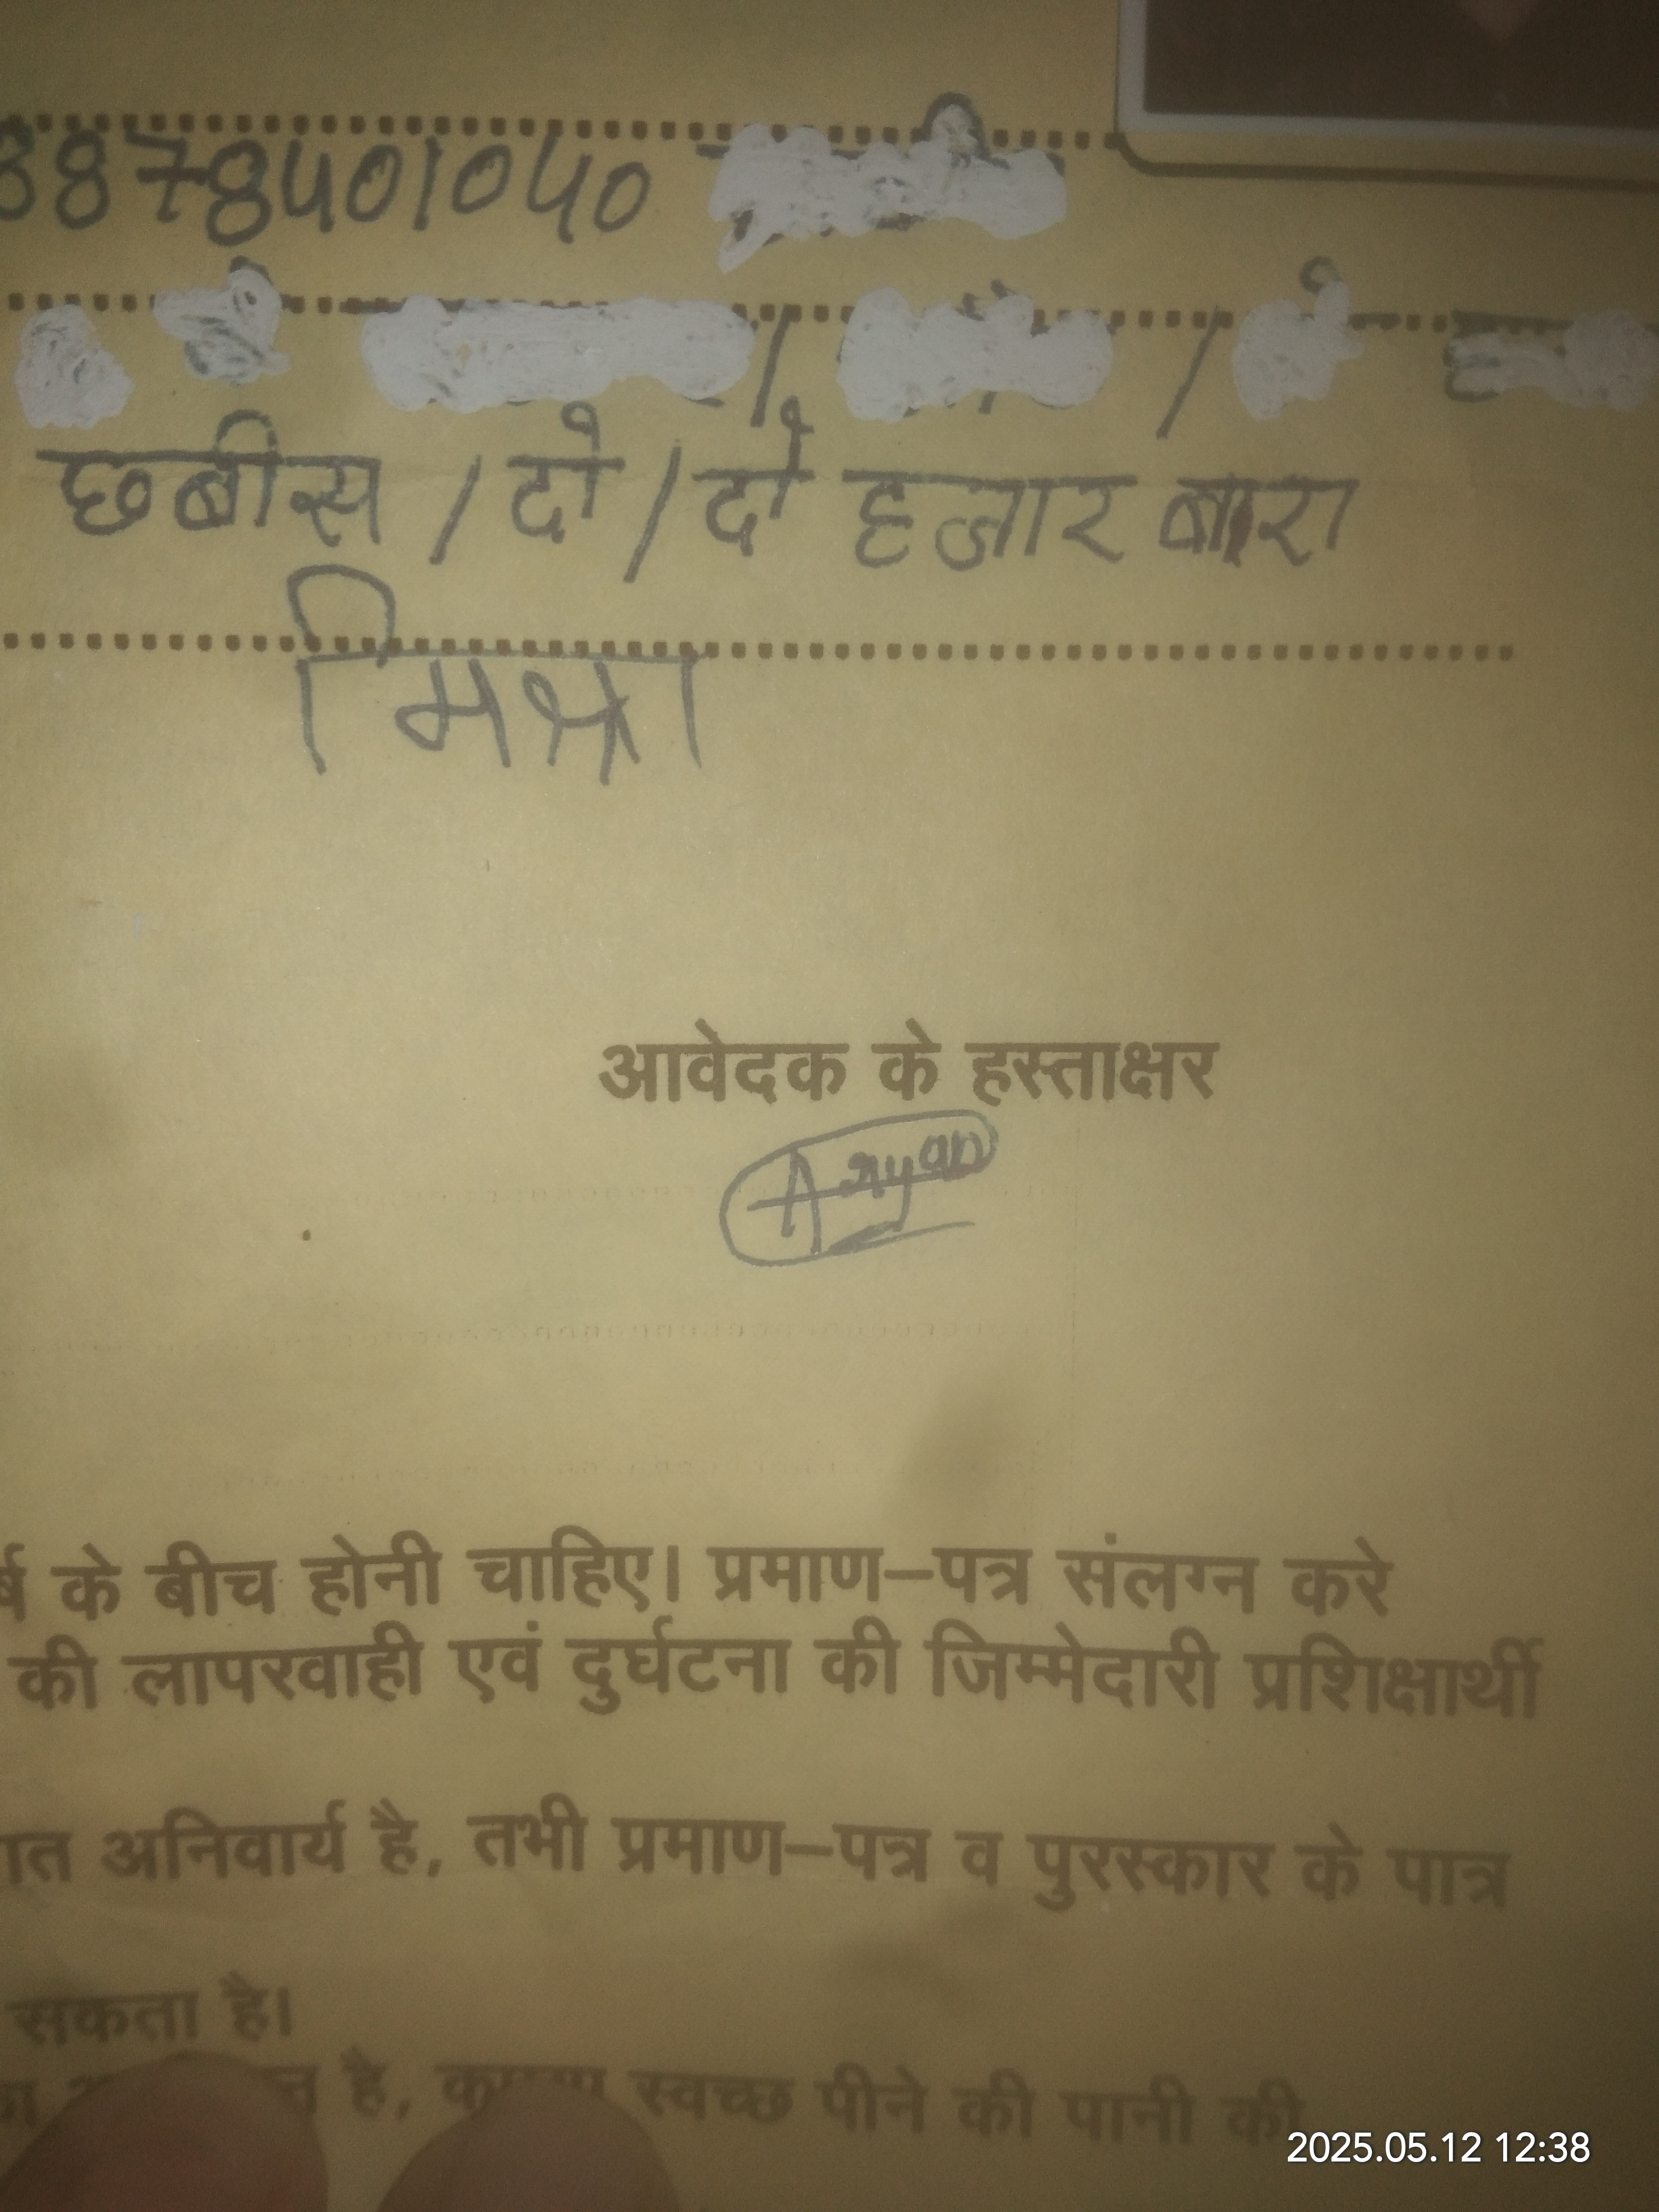 8878401040
छबीस / दो / दो हजार बारा
मिश्रा
आवेदक के हस्ताक्षर
Aryan
र्ष के बीच होनी चाहिए। प्रमाण–पत्र संलग्न करे
की लापरवाही एवं दुर्घटना की जिम्मेदारी प्रशिक्षार्थी
ात अनिवार्य है, तभी प्रमाण–पत्र व पुरस्कार के पात्र
सकता है।
है, स्वच्छ पीने की पानी की
2025.05.12 12:38